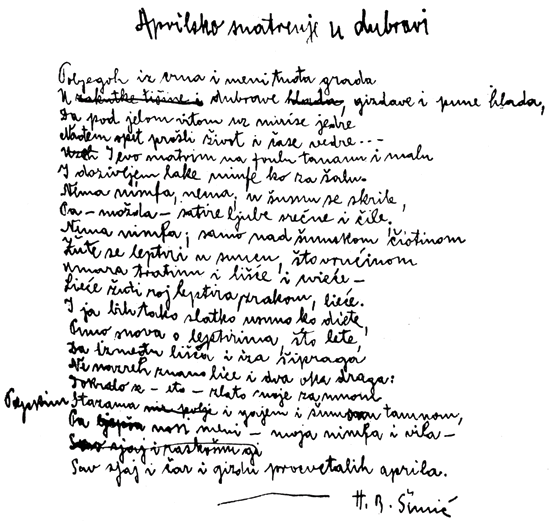 Aprilsko snatrenje u dubravi
Pobjegoh iz vrua i meni tuđa grada
U zakutke tišine i dubrave hlada, gizdave i pune hlada,
Da pod jelom vitom uz mirise jedre
Nađem opet prošli život i čase vedre ...
I evo motrim na foulu tananu i malu
I doziljem lake nimfe ko za šalu.
Nima nimfa, nema; u šumu se skrile,
Pa - možda - satire ljube srećne i čile.
Nima nimfa; samo nad šumskom čistinom
Žute se leptiri u suncu, što vrućinom
umara travu i lišće i cvieće -
Lieće žuti roj leptira zrakom, lieće.
I ja bih tako slatko usnuo ko diete,
Usno snova o leptirima, što lete,
Da između lišća i iza šipraga
Ne navreh znano lice i dva oka draga:
Dokralo se - eto - zlato moje za mnom
Poljskim stazama i gajem i šumom tamnom,
Pa nosi meni - moja nimfa i vila -
Sav sjaj i raskošnu
Sav sjaj i čar i gizdu procvetalih aprila.
A. B. Šimić